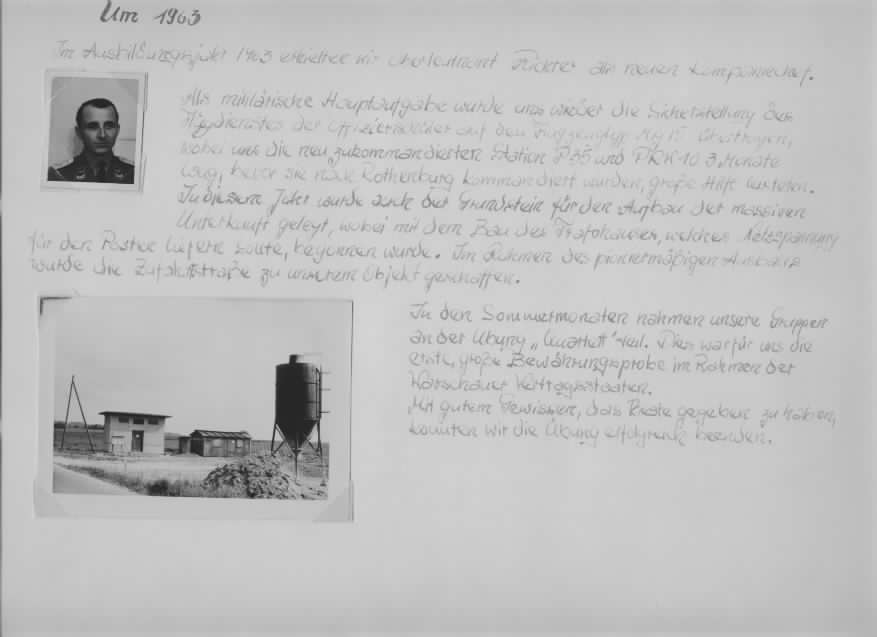 Um 1963
Im Ausbildungsjahr 1963 erhielten wir Oberleutnant als neuen Kompaniechef.
Als militärische Hauptaufgabe wurde uns wieder die Sicherstellung des
Flugdienstes der Offiziersschüler auf dem Flugzeugtyp Mig 15 übertragen,
wobei uns die neu zukommandierten Station P 35 und PRW 10 3 Monate
lang, bevor sie nach Rothenburg kommandiert wurden, große Hilfe leisteten.
In diesem Jahr wurde auch der Grundstein für den Aufbau der massiven
Unterkunft gelegt, wobei mit dem Bau des Trafohauses, welches Netzspannung
für den Posten liefern sollte, begonnen wurde. Im Rahmen des pioniermäßigen Ausbaus
wurde die Zufahrtstraße zu unserem Objekt geschaffen.
In den Sommermonaten nahmen unsere Truppen
an der Übung „Quartett" teil. Dies war für uns die
erste, große Bewährungsprobe im Rahmen der
Warschauer Vertragsstaaten.
Mit gutem Gewissen, das Beste gegeben zu haben,
konnten wir die Übung erfolgreich beenden.